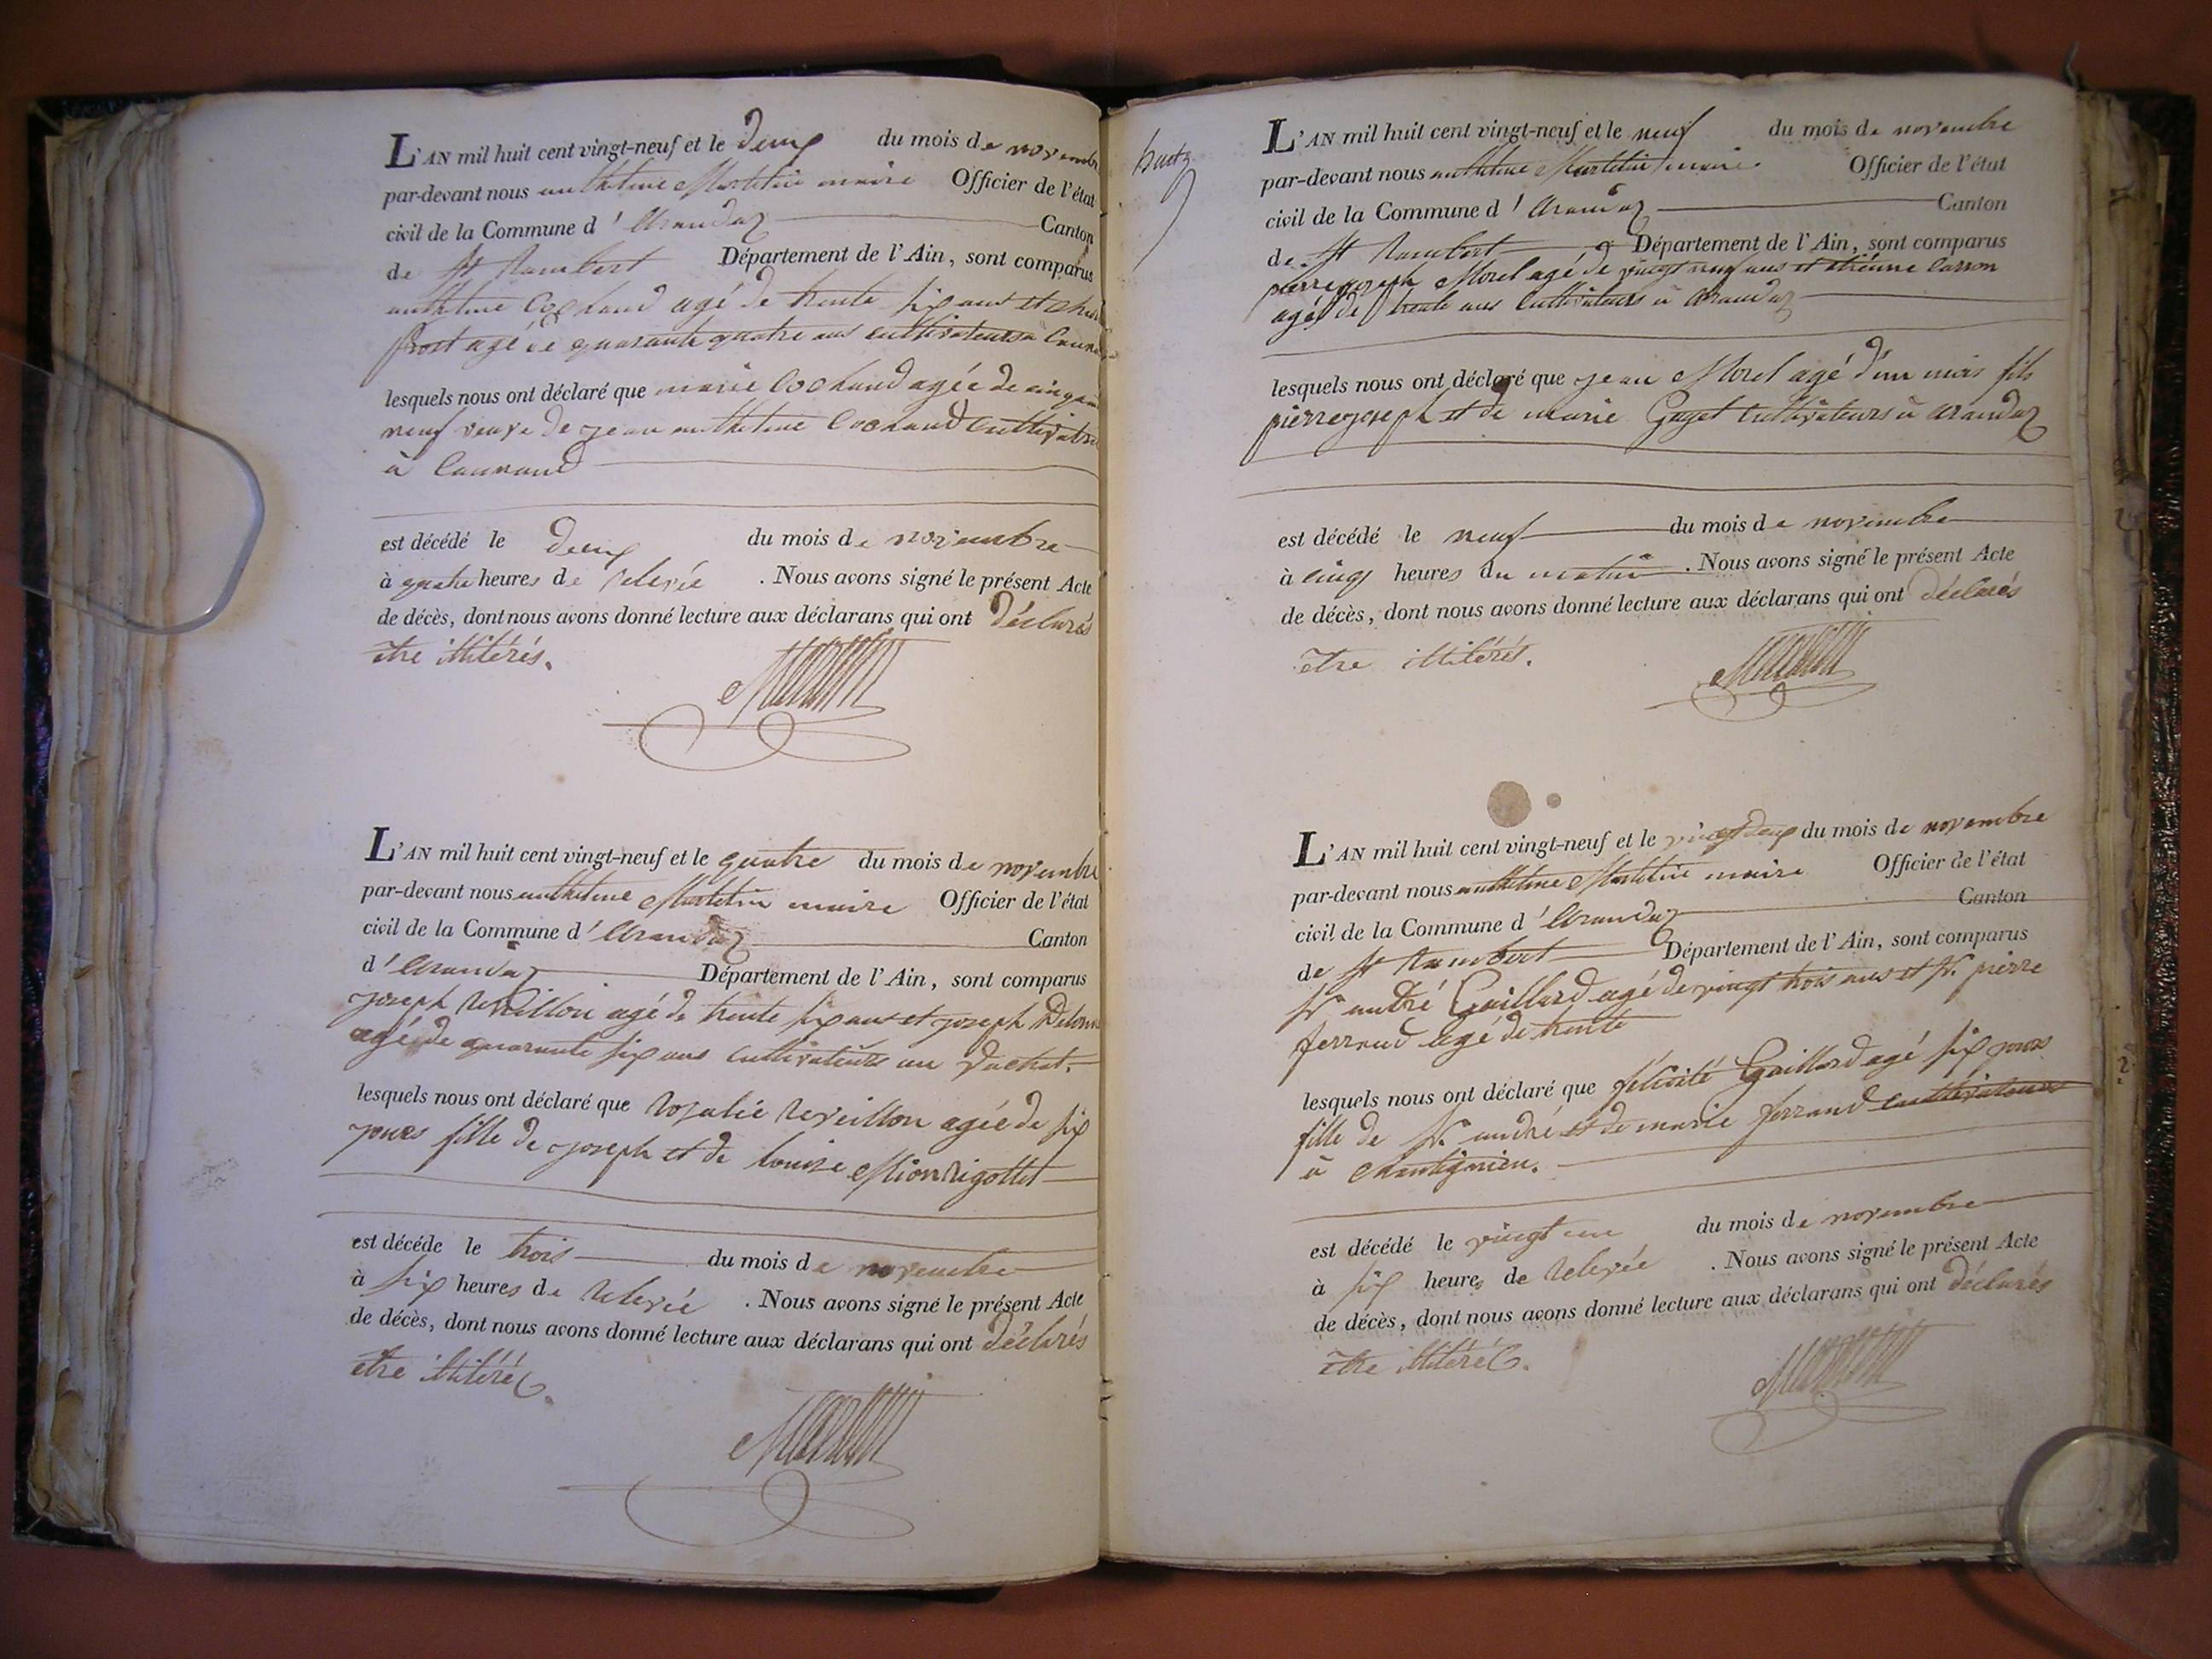 L'AN mil huit cent vingt-neuf et le deux du mois de novembre
par-devant nous anthelme Martelin maire Officier de l'état
civil de la Commune d'arandaz Canton
de St Rambert Département de l'Ain, sont comparus
anthelme Cochand agé de trente six ans et
prost agé de quarante quatre ans cultivateurs a
lesquels nous ont déclaré que marie Cochand agée de
neuf veuve de jean anthelme Cochand
à
est décédé le deux du mois de novembre
à quatre heures de relevée . Nous avons signé le présent Acte
de décès, dont nous avons donné lecture aux déclarans qui ont déclarés
être illitérés.
L'AN mil huit cent vingt-neuf et le quatre du mois de novembre
par-devant nous anthelme Martelin maire Officier de l'état
civil de la Commune d'arandaz Canton
d'arandaz Département de l'Ain, sont comparus
joseph Reveillon agé de trente six ans et joseph
agé de quarante six ans cultivateurs au
lesquels nous ont déclaré que Rosalie Reveillon agée de six
jours fille de joseph et de louise Mionrigottet
est décéde le trois du mois de novembre
à six heures de relevée . Nous avons signé le présent Acte
de décès, dont nous avons donné lecture aux déclarans qui ont déclarés
être illitérés.
L'AN mil huit cent vingt-neuf et le neuf du mois de novembre
par-devant nous anthelme Martelin maire Officier de l'état
civil de la Commune d'arandaz Canton
de St Rambert Département de l'Ain, sont comparus
pierre joseph Morel agé de vingt neuf ans et etiénne Carron
agé de trente ans Cultivateurs à arandaz
lesquels nous ont déclaré que jean Morel agé d'un mois fils
pierre joseph et de marie Gaget Cultivateurs à arandaz
est décédé le neuf du mois de novembre
à cinq heures du matin . Nous avons signé le présent Acte
de décès, dont nous avons donné lecture aux déclarans qui ont déclarés
etre illitérés.
L'AN mil huit cent vingt-neuf et le vingt deux du mois de novembre
par-devant nous anthelme Martelin maire Officier de l'état
civil de la Commune d'arandaz Canton
de St Rambert Département de l'Ain, sont comparus
andré Gaillard agé de vingt trois ans et pierre
ferrand agé de trente
lesquels nous ont déclaré que félicité Gaillard agé six jours
fille de andré et de marie ferrand cultivateurs
à
est décédé le vingt un du mois de novembre
à six heures de relevée . Nous avons signé le présent Acte
de décès, dont nous avons donné lecture aux déclarans qui ont déclarés
être illitérés.